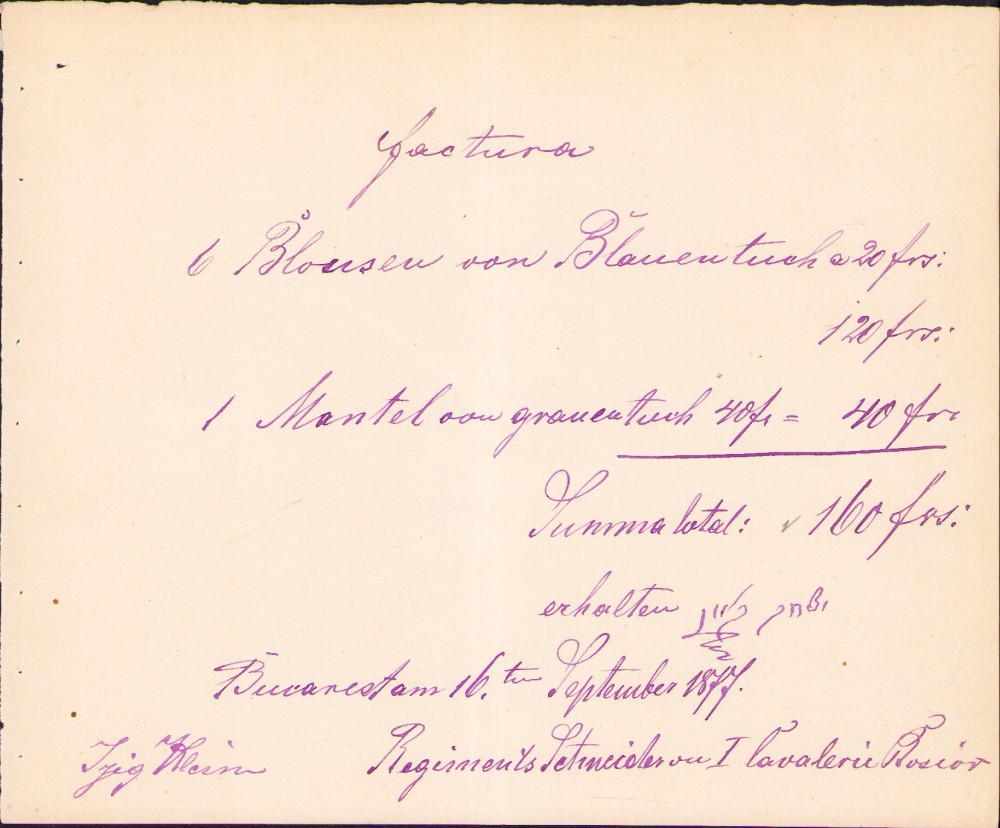 factura
6 Blousen von Blauentuch a 20 frs:
120 frs:
1 Mantel von grauentuch 40fr = 40 frs
Summa total: 160 frs:
erhalten יצחק קליין
Bucarest am 16.ten September 1877.
Izig Klein Regiments Schneider von I Cavalerie Rosior